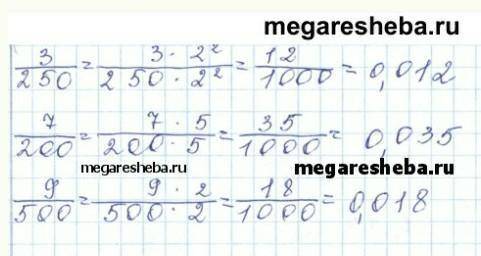 megaresheba.ru
3/250 = 3 · 2²/250 · 2² = 12/1000 = 0,012
7/200 = 7 · 5/200 · 5 = 35/1000 = 0,035
megaresheba.ru megaresheba.ru
9/500 = 9 · 2/500 · 2 = 18/1000 = 0,018